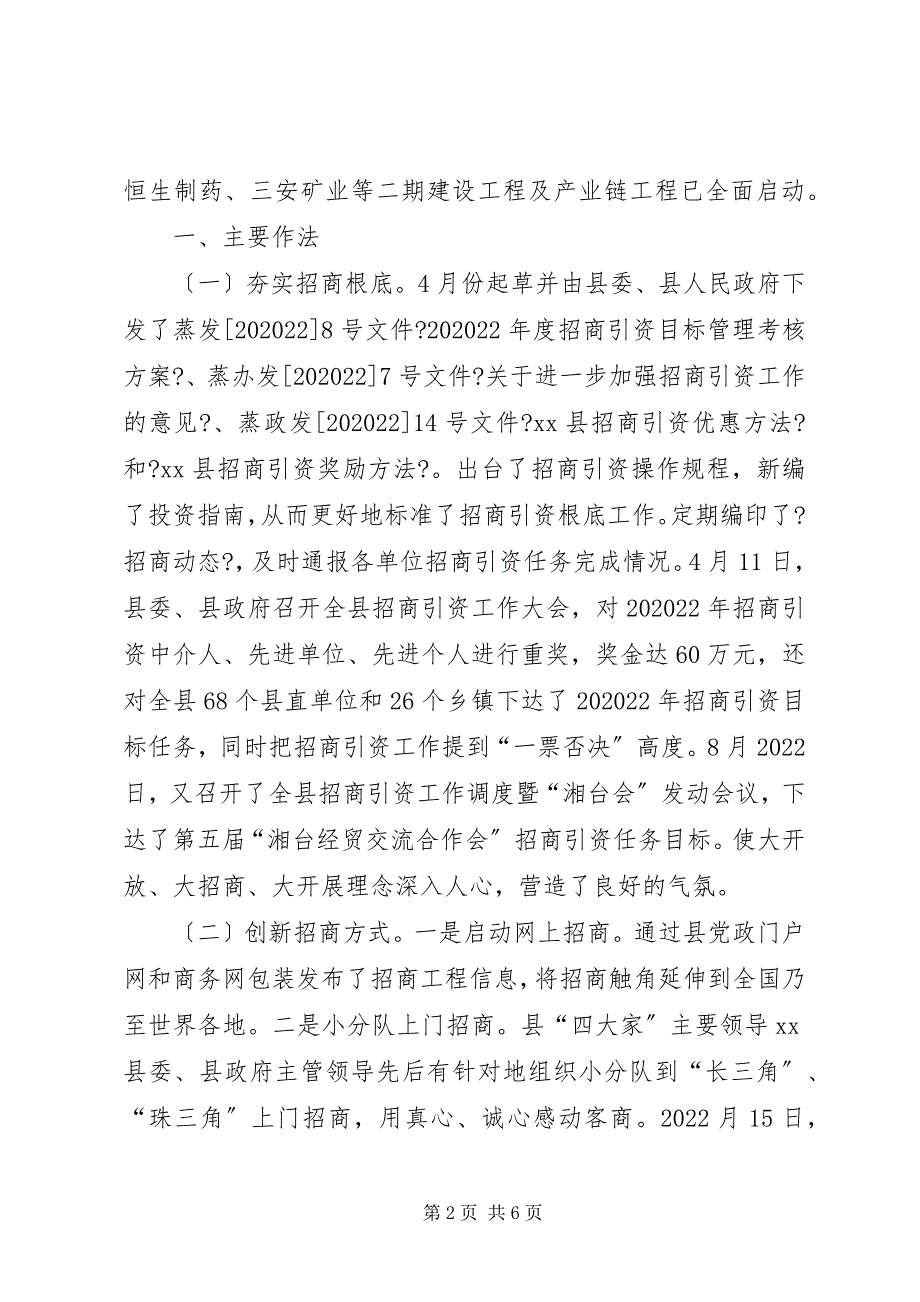 恒生制药、三安矿业等二期建设工程及产业链工程已全面启动。
一、主要作法
〔一〕夯实招商根底。4 月份起草并由县委、县人民政府下
发了蒸发[202022]8 号文件?202022 年度招商引资目标管理考核
方案?、蒸办发[202022]7 号文件?关于进一步加强招商引资工作
的意见?、蒸政发[202022]14 号文件?xx 县招商引资优惠方法?
和?xx 县招商引资奖励方法?。出台了招商引资操作规程，新编
了投资指南，从而更好地标准了招商引资根底工作。定期编印了?
招商动态?，及时通报各单位招商引资任务完成情况。4 月 11 日，
县委、县政府召开全县招商引资工作大会，对 202022 年招商引
资中介人、先进单位、先进个人进行重奖，奖金达 60 万元，还
对全县 68 个县直单位和 26 个乡镇下达了 202022 年招商引资目
标任务，同时把招商引资工作提到“一票否决〞高度。8 月 2022
日，又召开了全县招商引资工作调度暨“湘台会〞发动会议，下
达了第五届“湘台经贸交流合作会〞招商引资任务目标。使大开
放、大招商、大开展理念深入人心，营造了良好的气氛。
〔二〕创新招商方式。一是启动网上招商。通过县党政门户
网和商务网包装发布了招商工程信息，将招商触角延伸到全国乃
至世界各地。二是小分队上门招商。县“四大家〞主要领导 xx
县委、县政府主管领导先后有针对地组织小分队到“长三角〞、
“珠三角〞上门招商，用真心、诚心感动客商。2022 月 15 日，
第 2 页 共 6 页